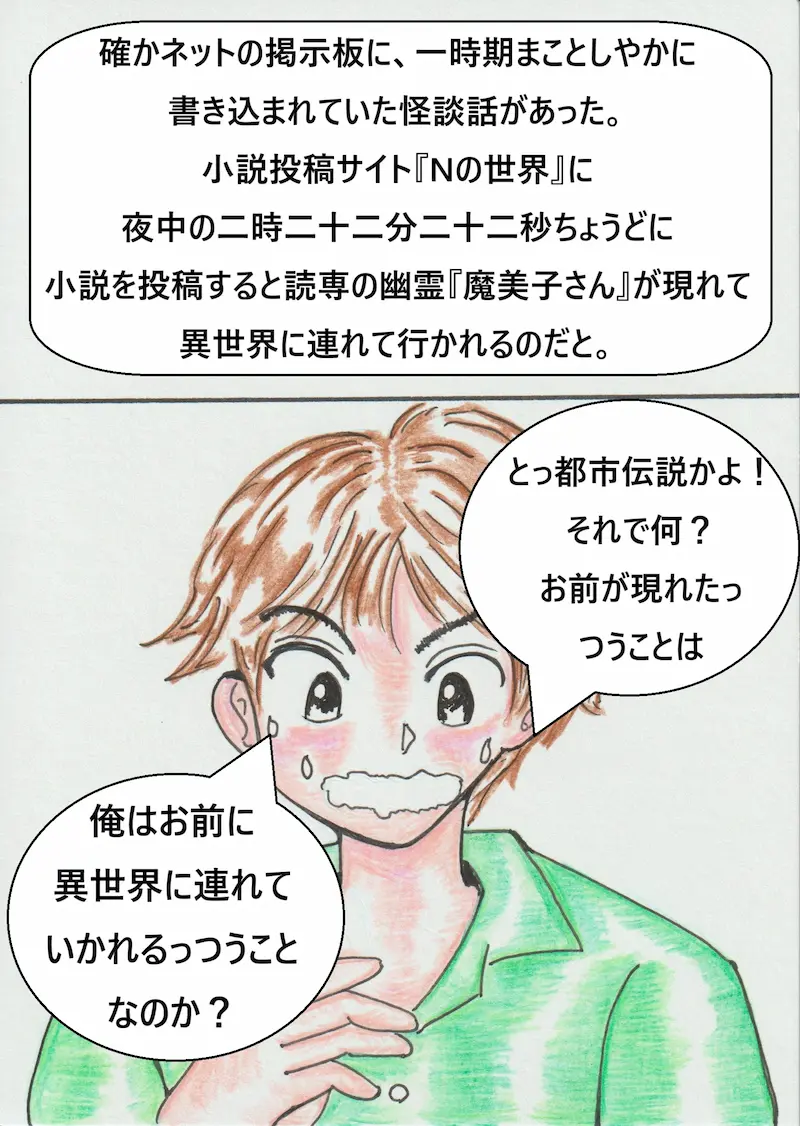 確かネットの掲示板に、一時期まことしやかに
書き込まれていた怪談話があった。
小説投稿サイト『Nの世界』に
夜中の二時二十二分二十二秒ちょうどに
小説を投稿すると読専の幽霊『魔美子さん』が現れて
異世界に連れて行かれるのだと。
とっ都市伝説かよ！
それで何？
お前が現れたっ
つうことは
俺はお前に
異世界に連れて
いかれるっつうこと
なのか？